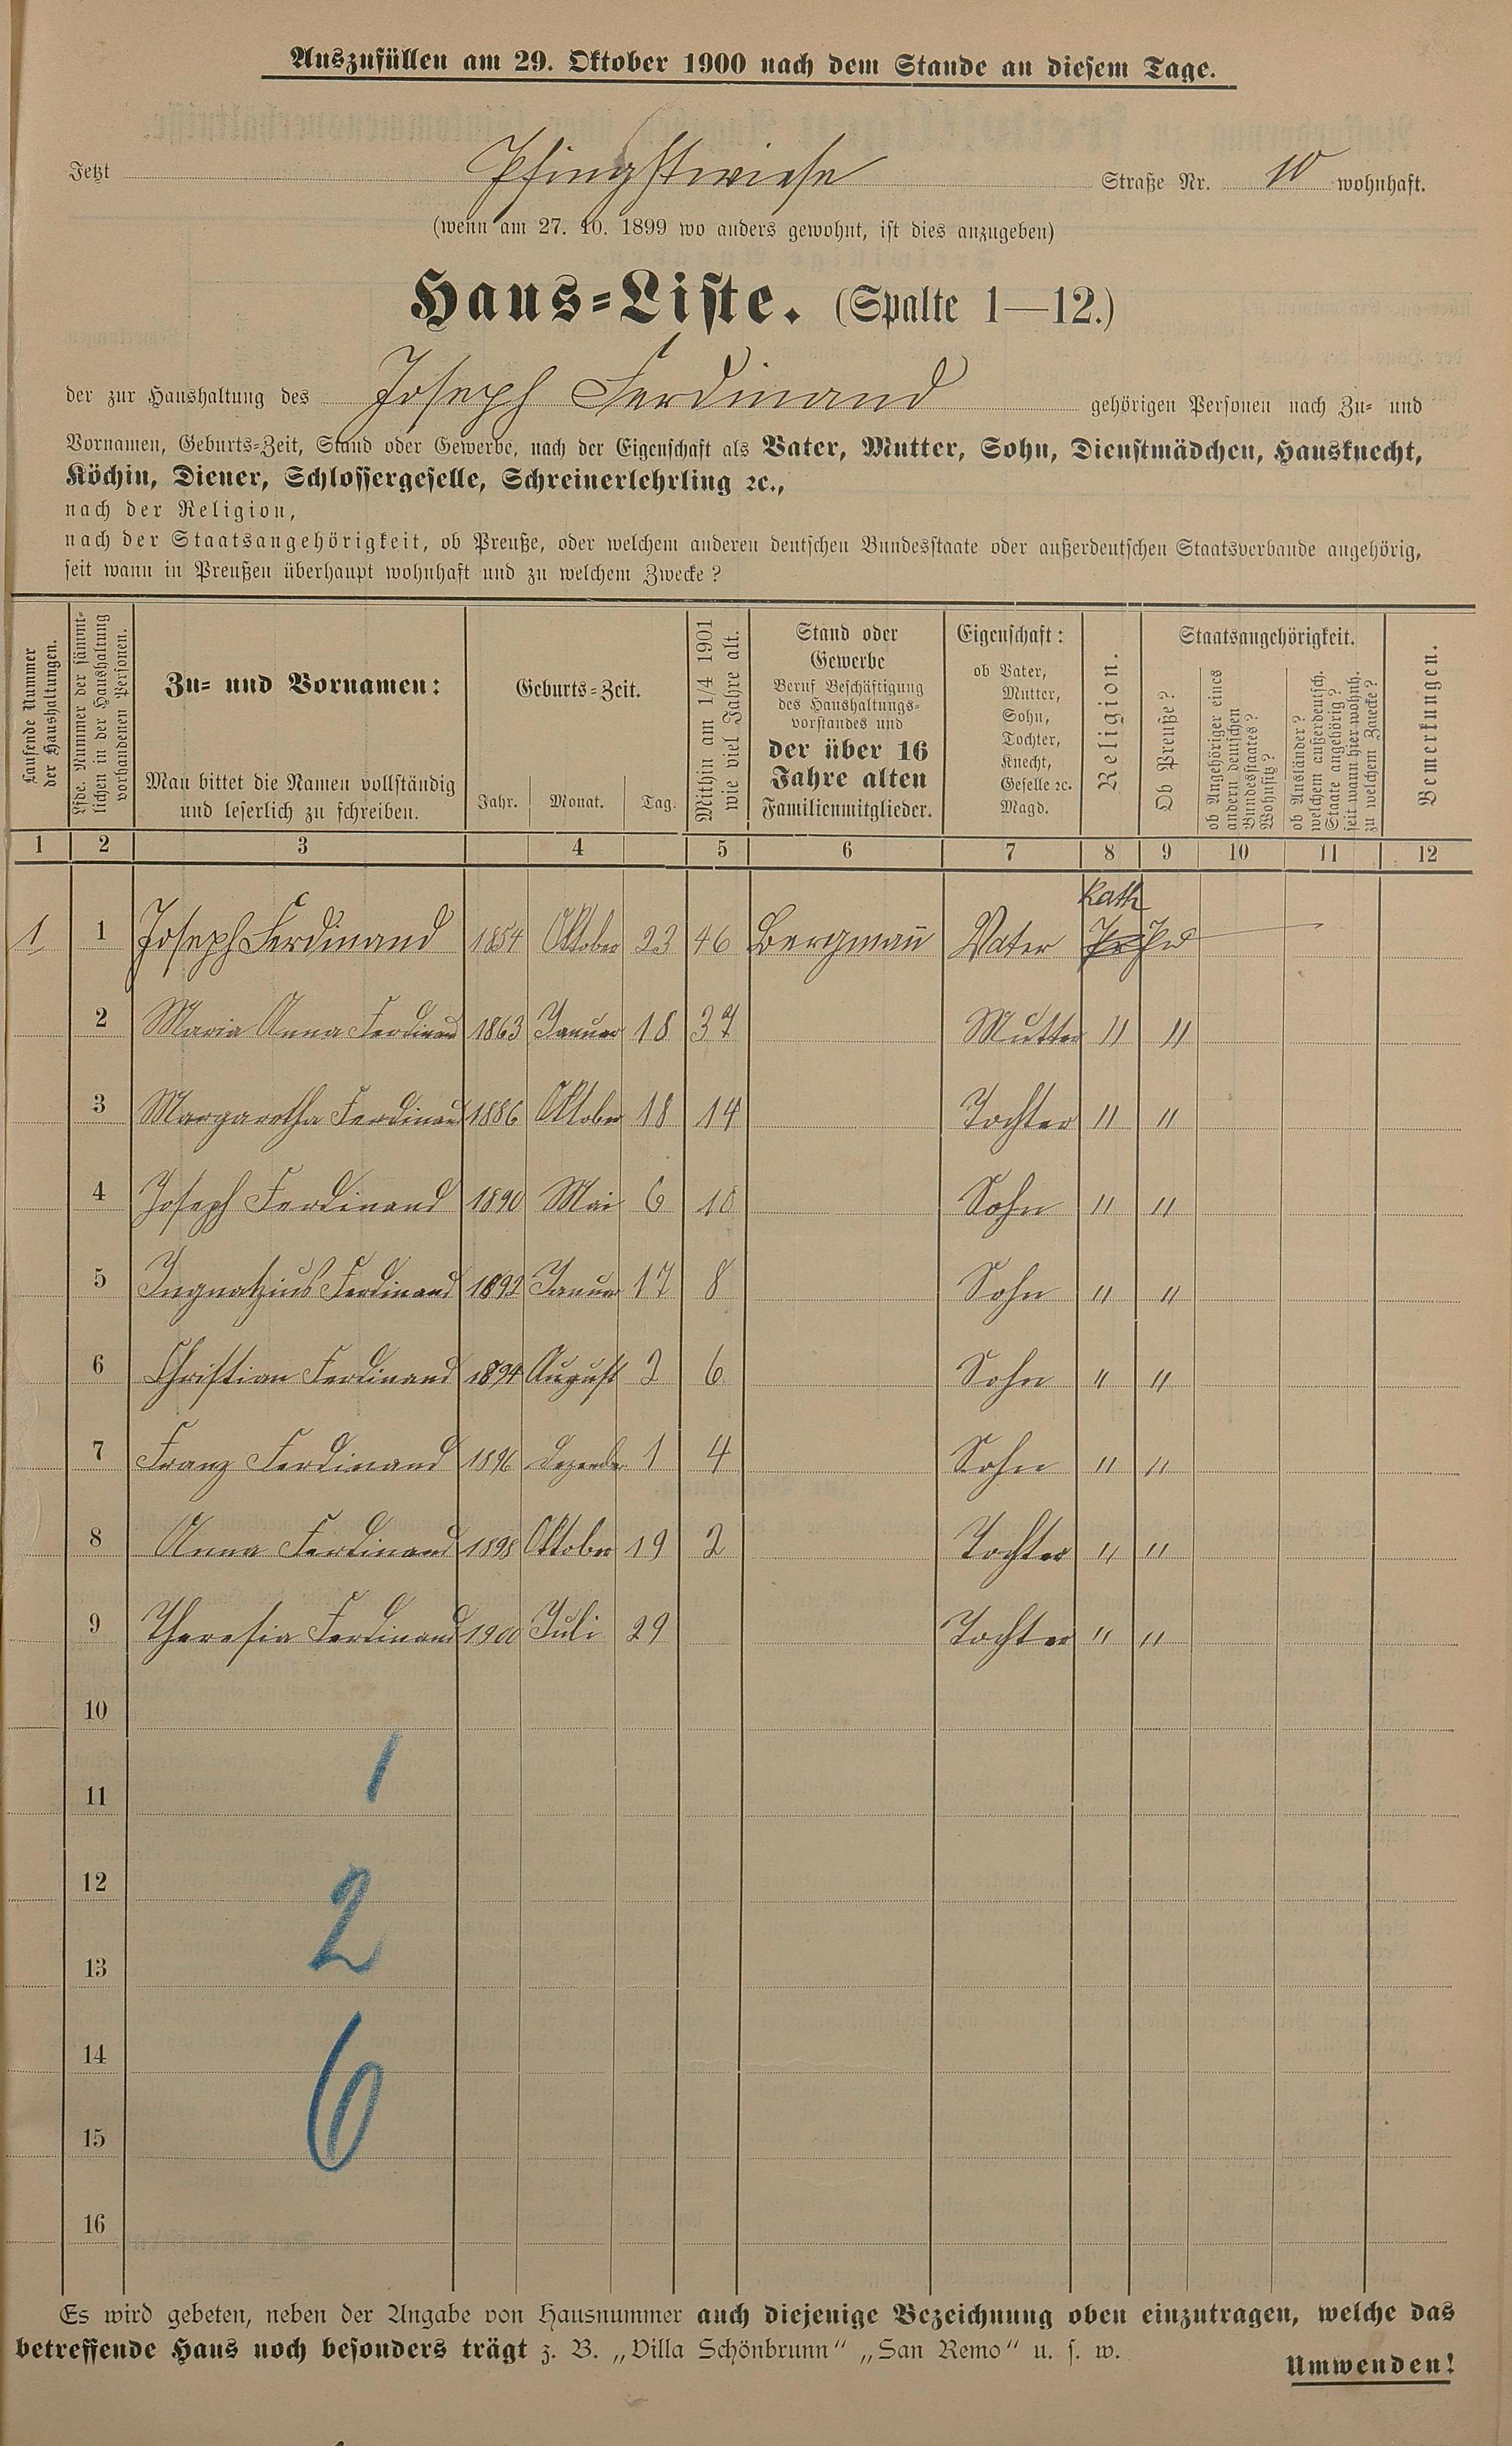 Auszufüllen am 29. Oktober 1900 nach dem Stande an diesem Tage.
Jetzt Pfingstwiese Straße Nr. 10 wohnhaft.
(wenn am 27. 10. 1899 wo anders gewohnt, ist dies anzugeben)
Haus-Liste. (Spalte 1—12.)
der zur Haushaltung des Joseph Ferdinand gehörigen Personen nach Zu- und
Vornamen, Geburts-Zeit, Stand oder Gewerbe, nach der Eigenschaft als Vater, Mutter, Sohn, Dienstmädchen, Hausknecht,
Köchin, Diener, Schlossergeselle, Schreinerlehrling ꝛc.,
nach der Religion,
nach der Staatsangehörigkeit, ob Preuße, oder welchem anderen deutschen Bundesstaate oder außerdeutschen Staatsverbande angehörig,
seit wann in Preußen überhaupt wohnhaft und zu welchem Zwecke?
Laufende Nummer
der Haushaltungen.
Lfde. Nummer der sämmt-
lichen in der Haushaltung
vorhandenen Personen.
Zu- und Vornamen:
Man bittet die Namen vollständig
und leserlich zu schreiben.
Geburts-Zeit.
Jahr. Monat. Tag.
Mithin am 1/4 1901
wie viel Jahre alt.
Stand oder
Gewerbe
Beruf Beschäftigung
des Haushaltungs-
vorstandes und
der über 16
Jahre alten
Familienmitglieder.
Eigenschaft:
ob Vater,
Mutter,
Sohn,
Tochter,
Knecht,
Geselle ꝛc.
Magd.
Religion.
Staatsangehörigkeit.
Ob Preuße?
ob Angehöriger eines
andern deutschen
Bundesstaates?
Wohnsitz?
ob Ausländer?
welchem außerdeutsch.
Staate angehörig?
seit wann hier wohnh.
zu welchem Zwecke?
Bemerkungen.
1 2 3 4 5 6 7 8 9 10 11 12
Kath
1 1 Joseph Ferdinand 1854 Oktober 23 46 Bergman̄ Vater Pr
2 Maria Anna Ferdinand 1863 Januar 18 37 Mutter " "
3 Margaretha Ferdinand 1886 Oktober 18 14 Tochter " "
4 Joseph Ferdinand 1890 Mai 6 10 Sohn " "
5 Ingnatzius Ferdinand 1892 Januar 17 8 Sohn " "
6 Christian Ferdinand 1894 August 2 6 Sohn " "
7 Franz Ferdinand 1896 Dezember 1 4 Sohn " "
8 Anna Ferdinand 1898 Oktober 19 2 Tochter " "
9 Theresia Ferdinand 1900 Juli 29 Tochter " "
10
1
11
12
2
13
14
6
15
16
Es wird gebeten, neben der Angabe von Hausnummer auch diejenige Bezeichnung oben einzutragen, welche das
betreffende Haus noch besonders trägt z. B. „Villa Schönbrunn" „San Remo" u. s. w.
Umwenden!